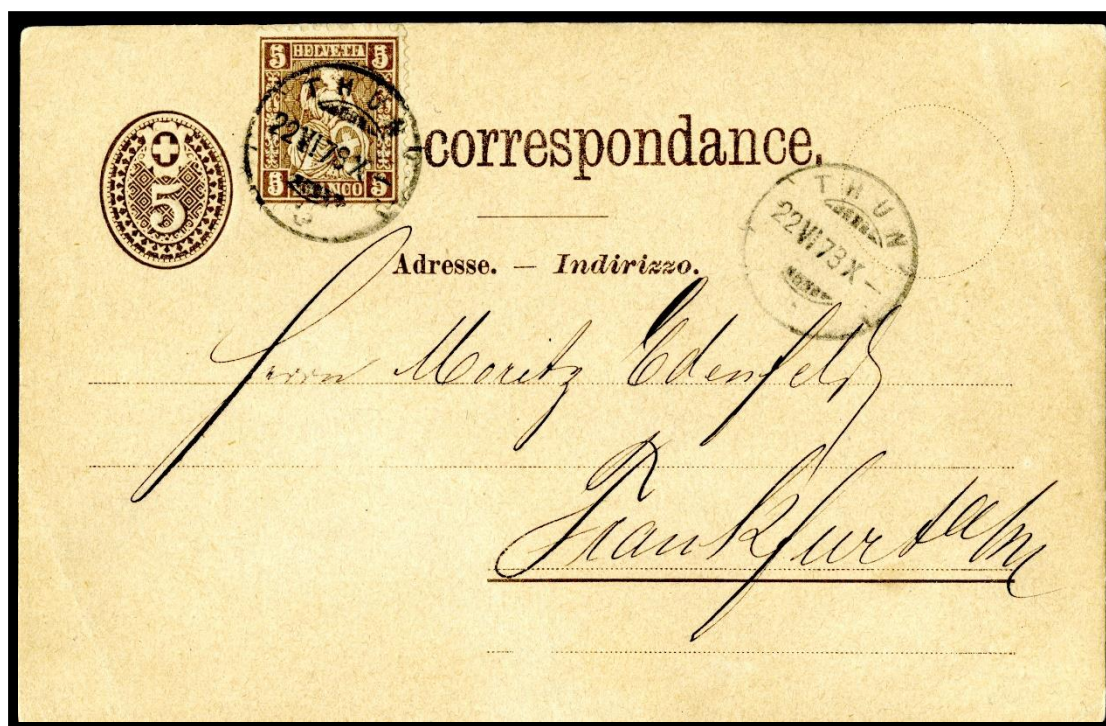 5 HELVETIA 5
5 FRANCO 5
THUN
22 VI 73 X
5
correspondance.
THUN
22 VI 73 X
Adresse. — Indirizzo.
Herrn Moritz Edenfeld
Frankfurt a/M